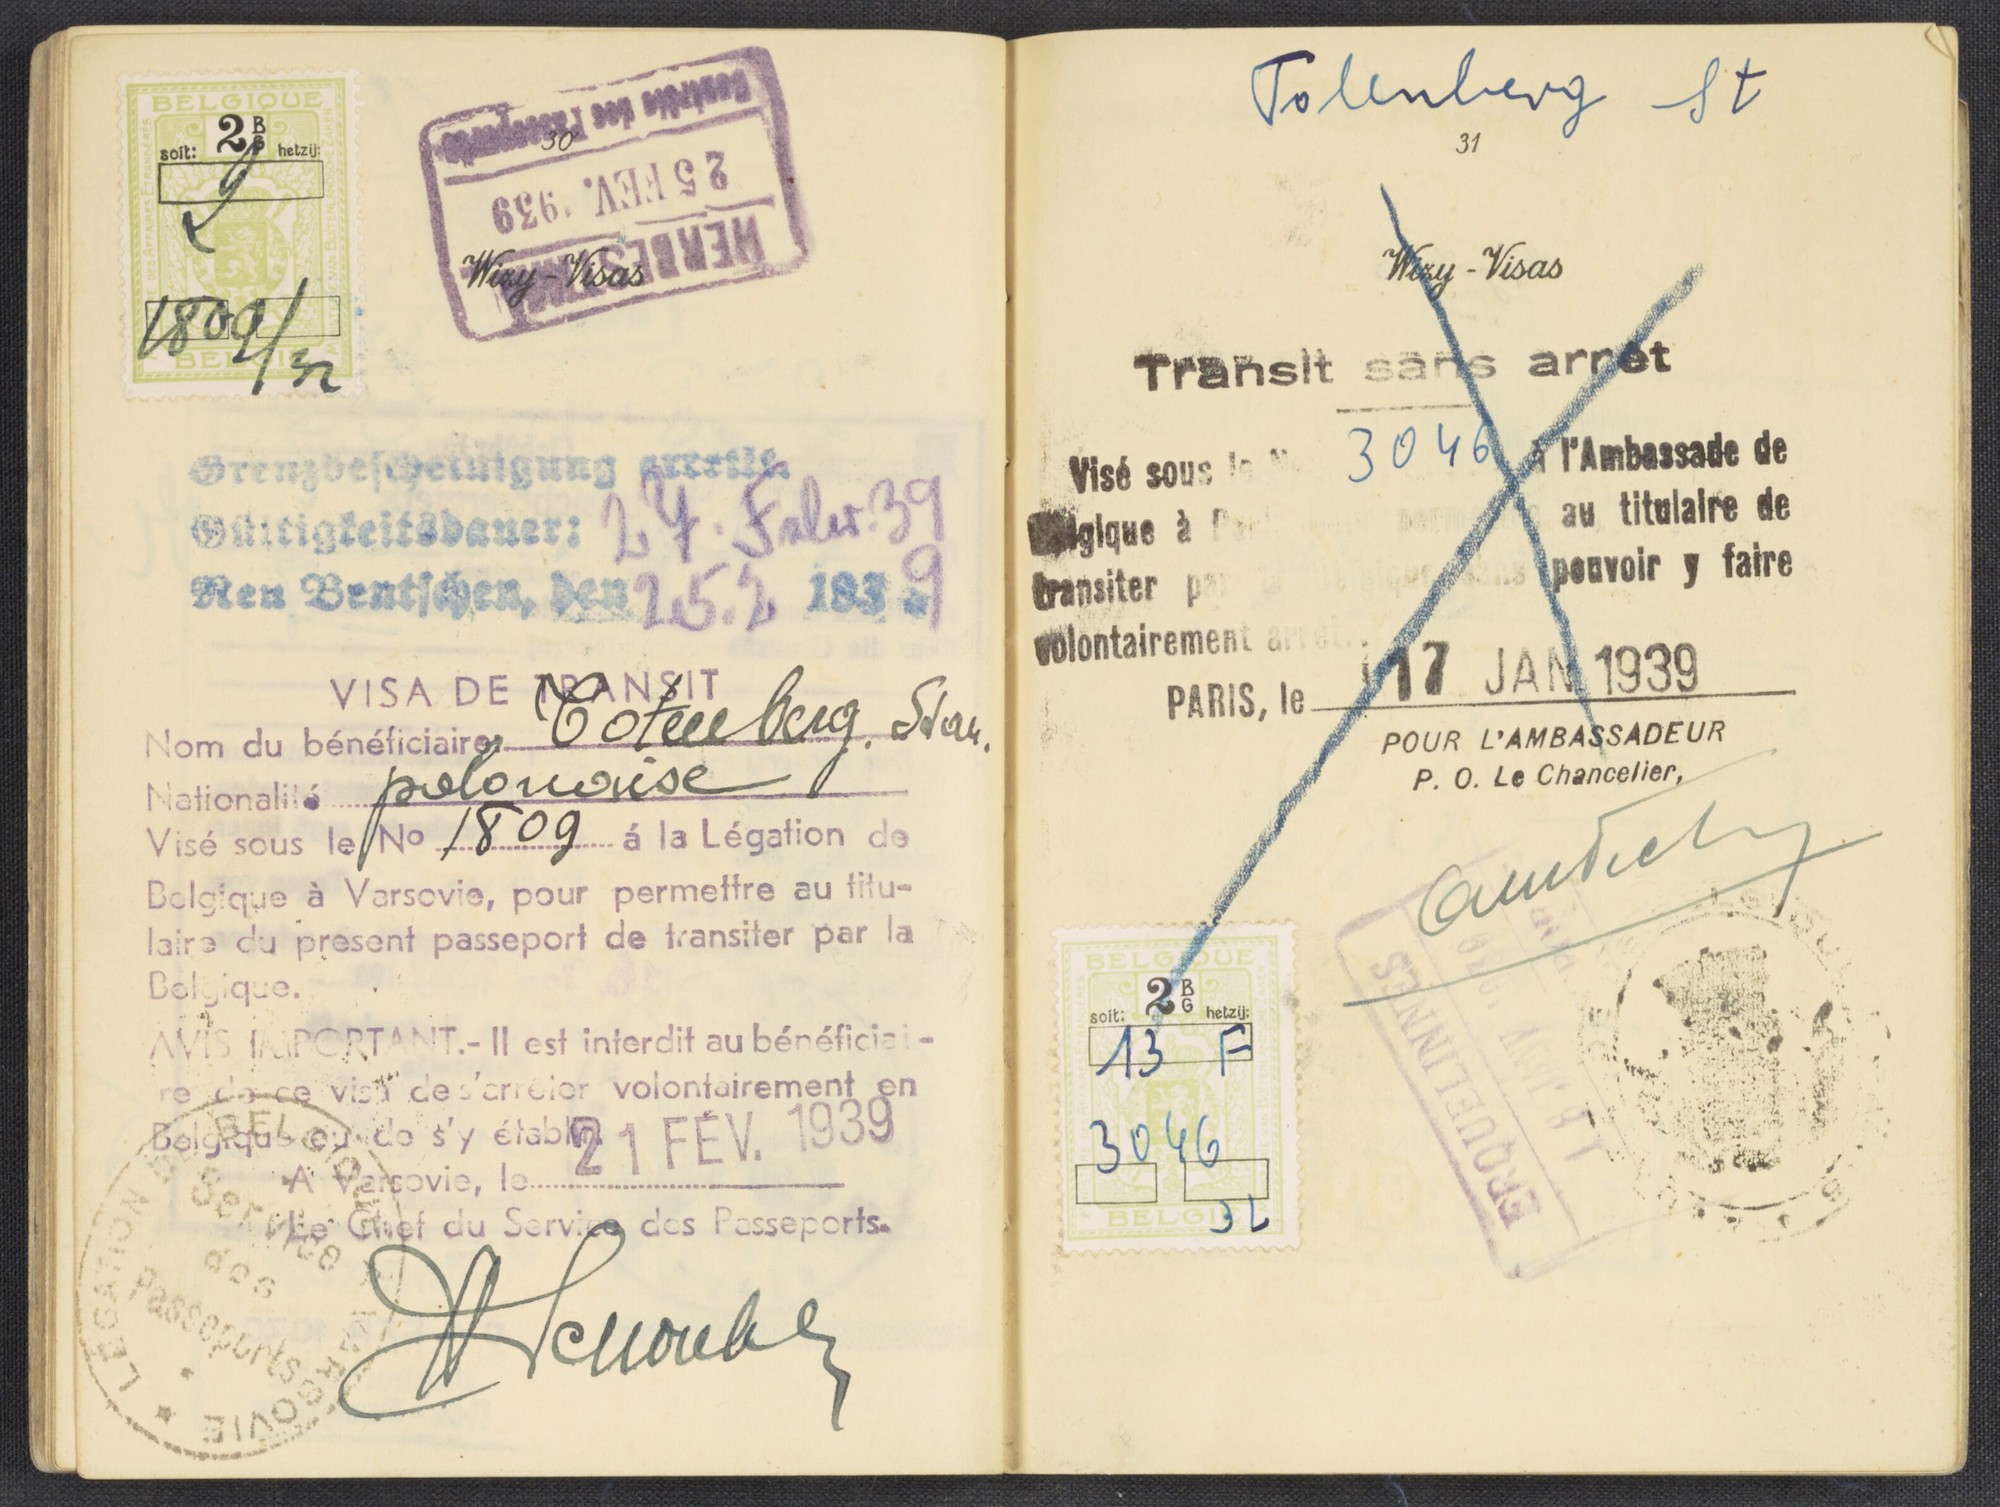 BELGIQUE
2 B G
soit: hetzij:
1809/32
BELGIE
Contrôle des Passeports
25 FEV. 1939
HERBESTHAL
30
Wizy - Visas
Grenzbescheinigung erteilt.
Gültigkeitsdauer: 27. Febr. 39
Neu Bentschen, den 25.2 1939
VISA DE TRANSIT
Nom du bénéficiaire Totenberg. Stan.
Nationalité polonaise
Visé sous le No 1809 á la Légation de
Belgique à Varsovie, pour permettre au titu-
laire du present passeport de transiter par la
Belgique.
AVIS IMPORTANT.- Il est interdit au bénéficiai-
re de ce visa de s'arrêter volontairement en
Belgique ou de s'y établir.
A Varsovie, le 21 FÉV. 1939
Le Chef du Service des Passeports.
LEGATION DE BELGIQUE A VARSOVIE
Service
des
Passeports
Totenberg St
31
Wizy - Visas
Transit sans arrêt
Visé sous le N° 3046 à l'Ambassade de
Belgique à Paris pour permettre au titulaire de
transiter par la Belgique sans pouvoir y faire
volontairement arrêt.
PARIS, le 17 JAN 1939
POUR L'AMBASSADEUR
P. O. Le Chancelier,
BELGIQUE
2 B G
soit: hetzij:
13 F
3046
32
BELGIE
ERQUELINNES